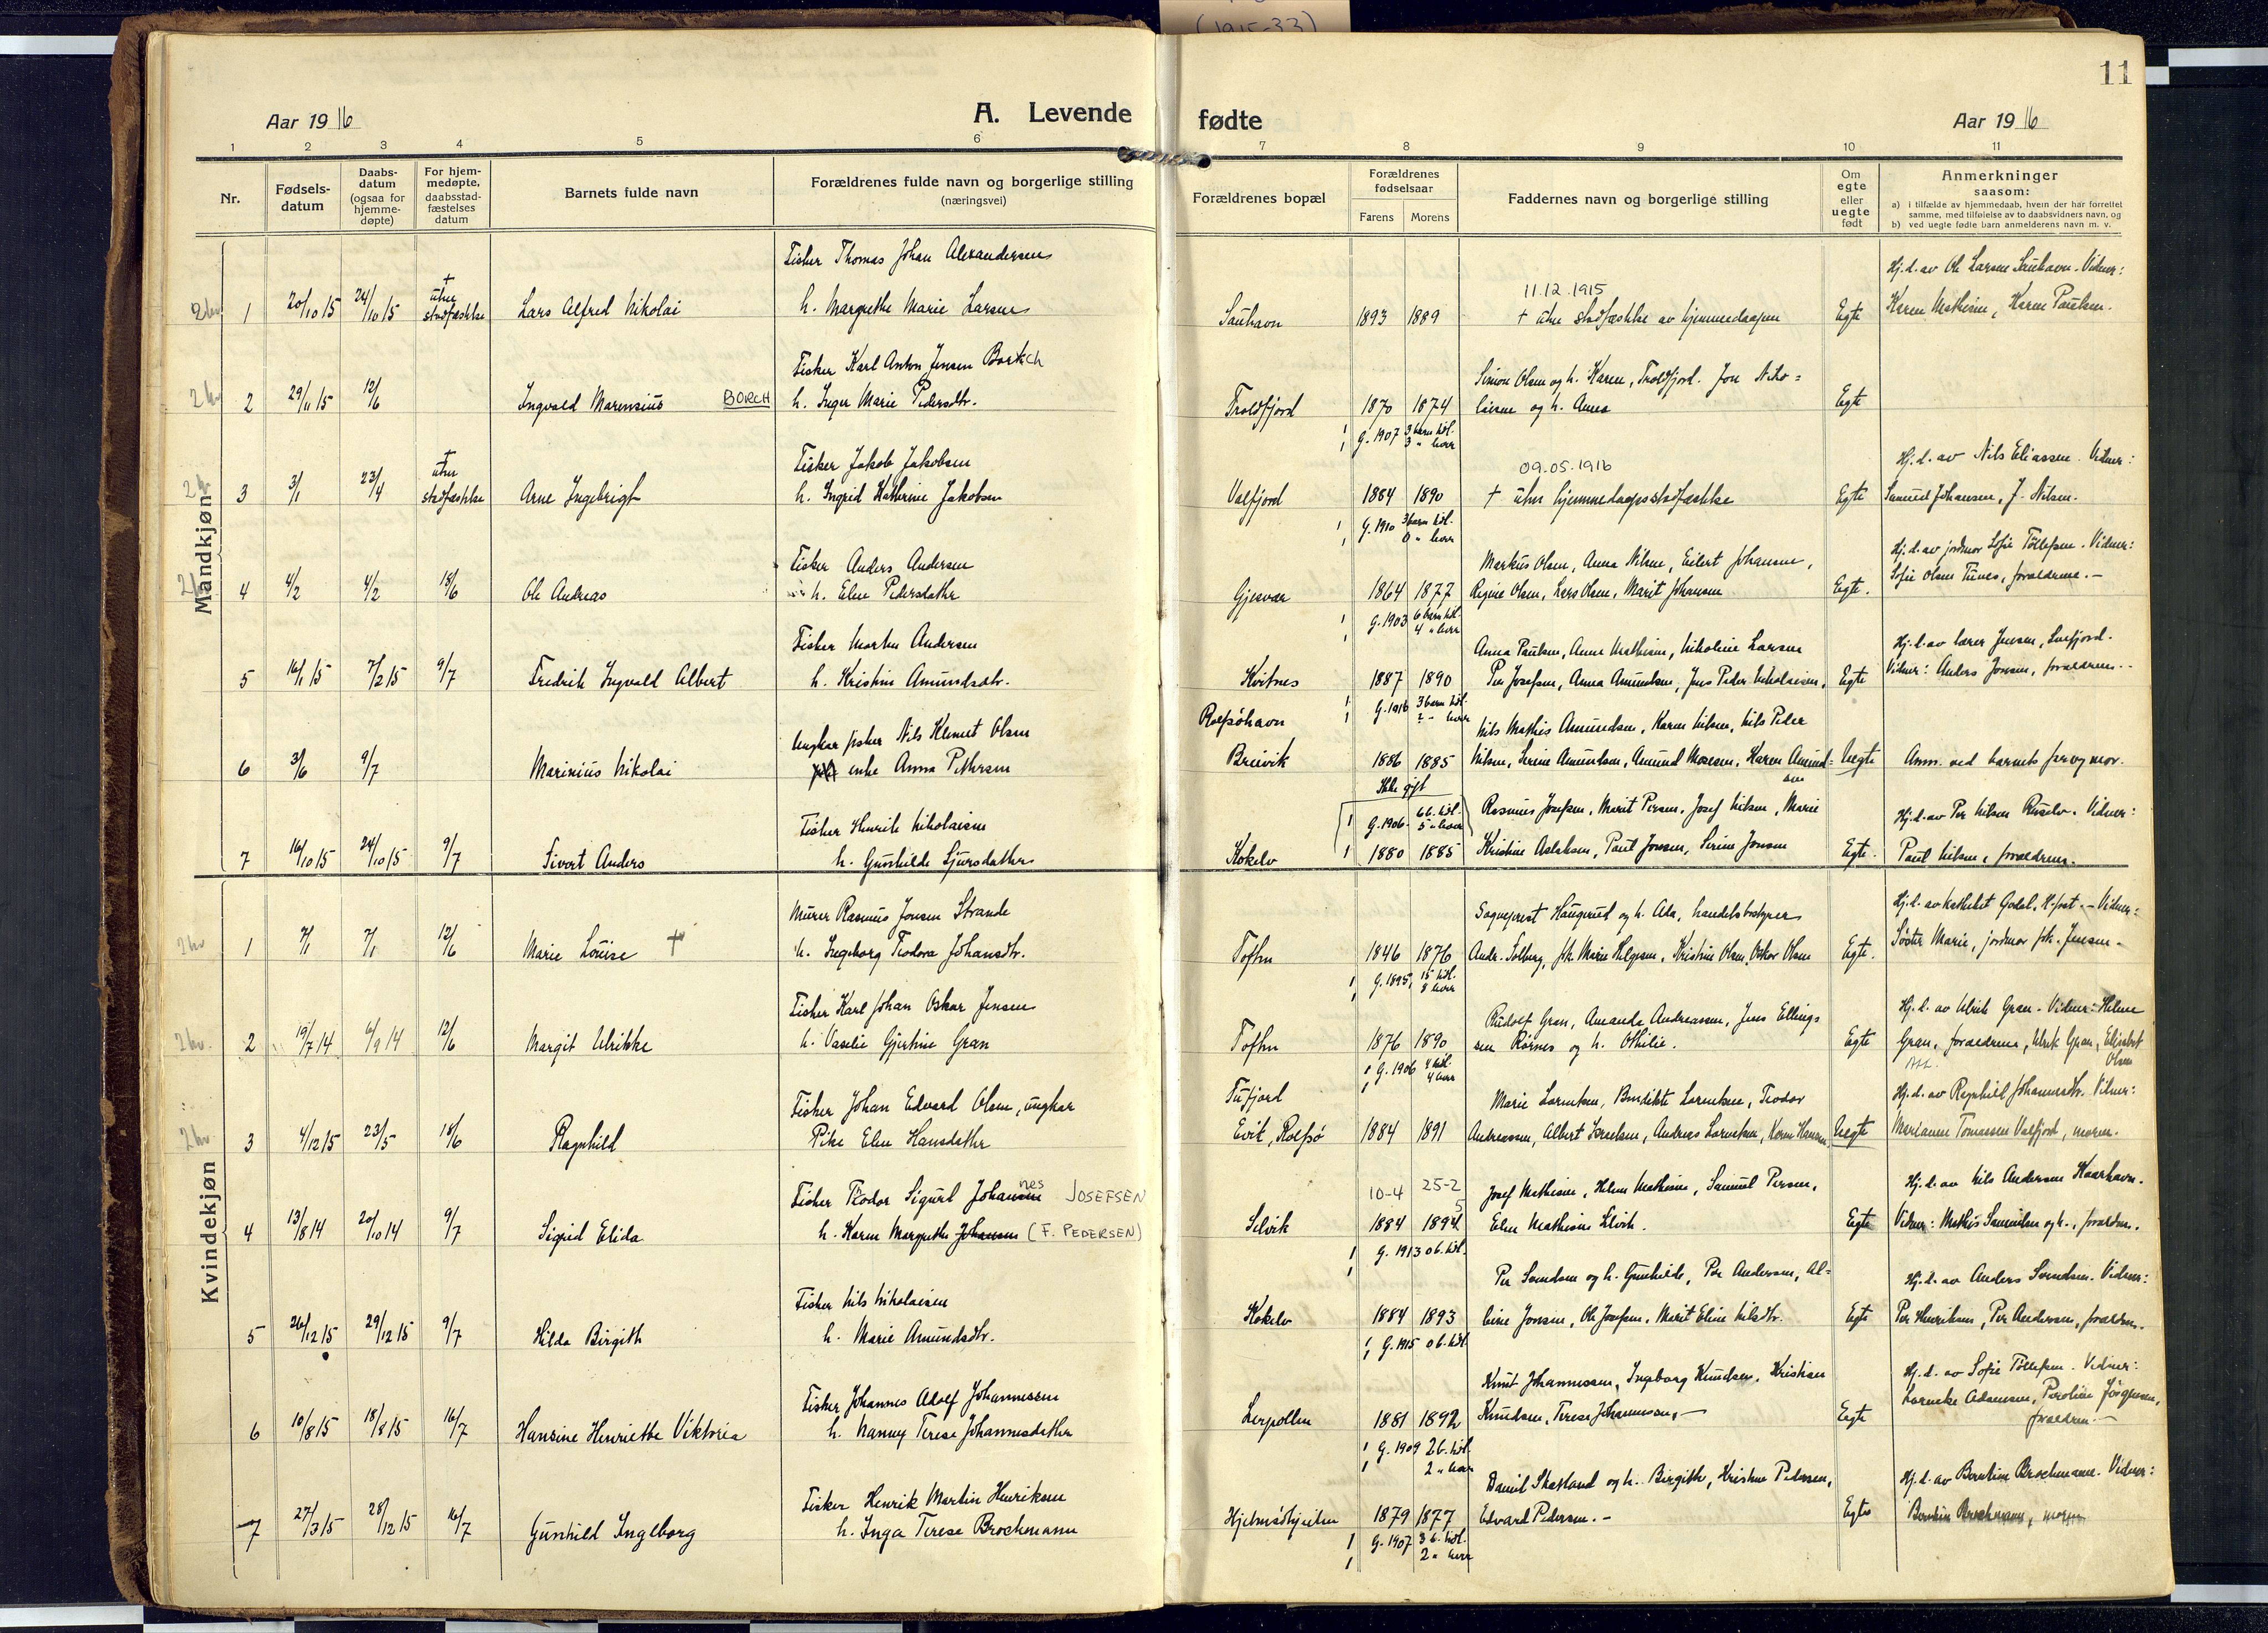 (1915-33)
11
Aar 1916
A. Levende
fødte
Aar 1916
1 2 3 4 5 6 7 8 9 10 11
Nr.
Fødsels-
datum
Daabs-
datum
(ogsaa for
hjemme-
døpte)
For hjem-
medøpte,
daabsstad-
fæstelses
datum
Barnets fulde navn
Forældrenes fulde navn og borgerlige stilling
(næringsvei)
Forældrenes bopæl
Forældrenes
fødselsaar
Farens Morens
Faddernes navn og borgerlige stilling
Om
egte
eller
uegte
født
Anmerkninger
saasom:
a) i tilfælde av hjemmedaab, hvem der har forrettet
samme, med tilføielse av to daabsvidners navn, og
b) ved uegte fødte barn anmelderens navn m. v.
Mandkjøn
Fisker Thomas Johan Alexandersen
Hj. d. av Ole Larsen Sauhavn. Vidner:
1 20/10 15 24/10 15 † uten stadfæstelse Lars Alfred Nikolai h. Margrethe Marie Larsen
11.12.1915
Sauhavn 1893 1889 † uten stadfæstelse av hjemmedaapen Egte Karen Mathisen, Karen Paulsen.
Fisker Karl Anton Jensen Bortsch
Simon Olsen og h. Karen, Troldfjord. Jon Niko=
2 29/11 15 12/6 Ingvald Marensius BORCH h. Inger Marie Pedersdtr.
Troldfjord 1870 1874 laisen og h. Anna Egte
G. 1907 3 barn tidl. 3 " lever
Fisker Jakob Jakobsen
09.05.1916
Hj. d. av Nils Eliassen. Vidner:
3 3/1 23/4 † uten stadfæstelse Arne Ingebrigt h. Ingrid Kathrine Jakobsen
Valfjord 1884 1890 † uten hjemmedaapsstadfæstelse Egte Samuel Johansen, J. Nilsen.
G. 1910 3 barn tidl. 0 " lever
Fisker Anders Andersen
Markus Olsen, Anna Nilsen, Eilert Johansen,
Hj. d. av jordmor Sofie Tollefsen. Vidner:
4 4/2 4/2 18/6 Ole Andreas h. Elen Pedersdatter
Gjesvær 1864 1877 Regine Olsen, Lars Olsen, Marit Johansen Egte. Sofie Olsen Tunes, forældrene. -
G. 1903 6 barn tidl. 4 " lever
Fisker Morten Andersen
Anna Paulsen, Anne Mathisen, Nikoline Larsen
Hj. d. av lærer Jensen, Snefjord.
5 16/1 15 7/2 15 9/7 Fredrik Ingvald Albert h. Kristine Amundsdtr.
Kvitnes 1887 1890 Per Josefsen, Anna Amundsen, Jens Peder Nikolaisen, Egte Vidner: Anders Jonsen, forældrene. -
G. 1916 3 barn tidl. 2 " lever
Rolfsøhavn
Ungkar fisker Nils Klemet Olsen
Nils Mathis Amundsen, Karen Nilsen, Nils Peder
6 3/6 9/7 Marinius Nikolai enke Anna Pettersen
Breivik 1886 1885 Nilsen, Serine Amundsen, Amund Mosesen, Karen Amund=sen Uegte Anm. ved barnets far og mor.
Ikke gift
Fisker Henrik Nikolaisen
G. 1906 6 b. tidl. 5 " lever
Rasmus Josefsen, Marit Persen, Josef Nilsen, Marie
Hj. d. av Per Nilsen Russelv. Vidner:
7 16/10 15 24/10 15 9/7 Sivert Anders h. Gunhilde Sjursdatter
Kokelv 1880 1885 Kristine Aslaksen, Paul Jonsen, Serine Jonsen Egte. Paul Nilsen, forældrene.
Kvindekjøn
Murer Rasmus Jonsen Strande
Sogneprest Haugerud og h. Ada, handelsbestyrer
Hj. d. av kateket Godal, H.fest. - Vidner:
1 7/1 7/1 12/6 Marie Louise † h. Ingeborg Teodora Johansdtr.
Toften 1846 1876 Andr. Solberg, frk. Marie Helgesen, Kristine Olsen, Oskar Olsen Egte. Søster Marie, jordmor frk. Jensen. -
G. 1895 15 tidl. 8 lever
Fisker Karl Johan Oskar Jensen
Rudolf Gran, Amanda Andreassen, Jens Ellings
Hj. d. av Ulrik Gran. Vidner: Helene
2 19/7 14 6/9 14 12/6 Margit Ulrikke h. Vaselie Gjertine Gran
Toften 1876 1890 sen Rørnes og h. Othilie. Egte Gran, forældrene, Ulrik Gran, Elisabet Olsen
G. 1906 4 tidl. 4 lever
Tufjord
Fisker Johan Edvard Olsen, ungkar
Marie Lorentsen, Bendikte Lorentsen, Teodor
Hj. d. av Ragnhild Johannesdtr. Vidner:
3 4/12 15 23/5 18/6 Ragnhild Pike Elen Hansdatter
Evit, Rolfsø 1884 1891 Andreassen, Albert Lorentsen, Andreas Lorentsen, Karen Hansen Uegte Marianne Tomassen Valfjord, moren.
Fisker Teodor Sigurd Johannes JOSEFSEN
10-4 25-2
Josef Mathisen, Helene Mathisen, Samuel Persen,
Hj. d. av Nils Andersen Kaarhavn.
4 13/8 14 20/10 14 9/7 Sigrid Elida h. Karen Margrethe Johansen (F. PEDERSEN)
Selvik 1884 1894 5 Elen Mathisen Selvik. Egte Vidner: Mathis Samuelsen og h., forældrene.
G. 1913 0 b. tidl.
Fisker Nils Nikolaisen
Per Svendsen og h. Gunhilde, Per Andersen, Al=
Hj. d. av Anders Svendsen. Vidner:
5 26/12 15 29/12 15 9/7 Hilda Birgith h. Marie Amundsdtr.
Kokelv 1884 1893 bine Jonsen, Ole Josefsen, Marit Eline Nilsdtr. Egte Per Henriksen, Per Andersen, forældrene.
G. 1915 0 b. tidl.
Fisker Johannes Adolf Johannessen
Knut Johannessen, Ingeborg Knudsen, Kristian
Hj. d. av Sofie Tollefsen. Vidner:
6 10/8 15 18/8 15 16/7 Hansine Henriette Viktoria h. Nanny Terese Johannesdatter
Lerpollen 1881 1892 Knudsen, Terese Johannessen, - Egte Lorentse Adamsen, Peroline Jörgensen, forældrene. -
G. 1909 2 b. tidl. 2 " lever
Fisker Henrik Martin Henriksen
Daniel Skatland og h. Birgitte, Kristine Pedersen,
Hj. d. av Berntine Brochmann. Vidner:
7 27/3 15 28/12 15 16/7 Gunhild Ingeborg h. Inga Terese Brochmann
Hjelmsøhjulen 1879 1877 Edvard Pedersen. - Egte Berntine Brochmann, moren
G. 1907 3 b. tidl. 2 " lever